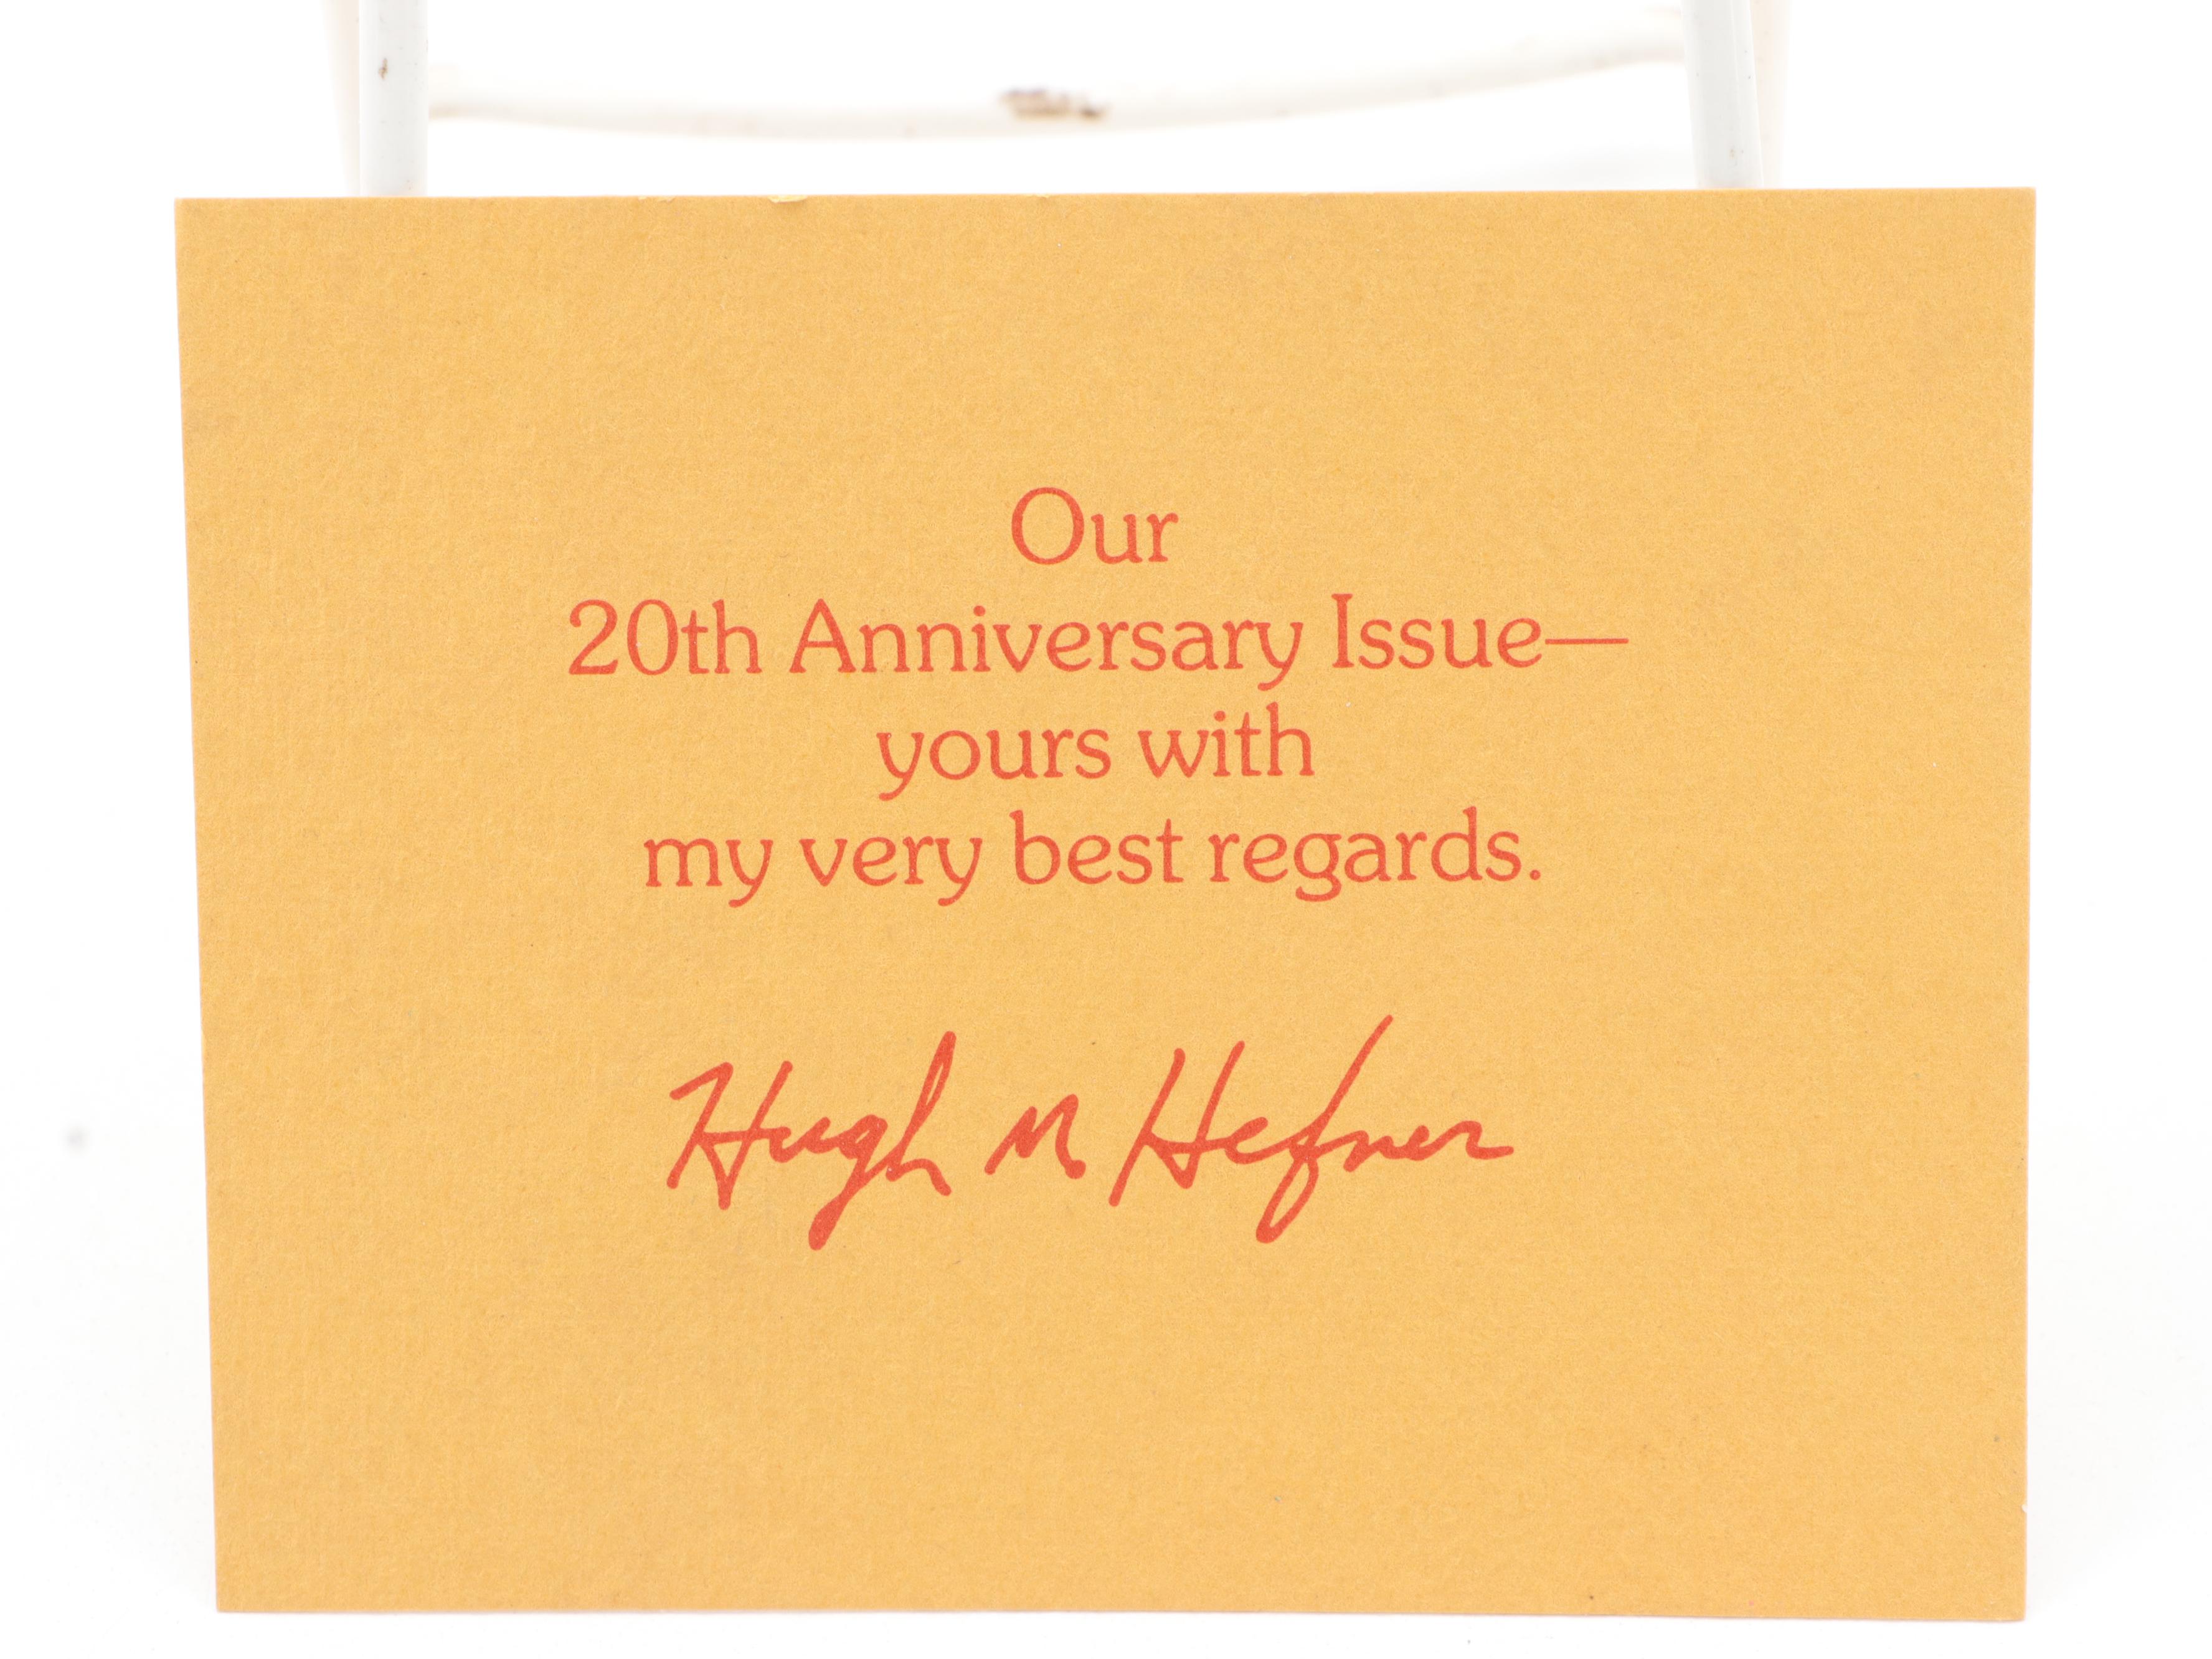 Our
20th Anniversary Issue—
yours with
my very best regards.
Hugh M Hefner